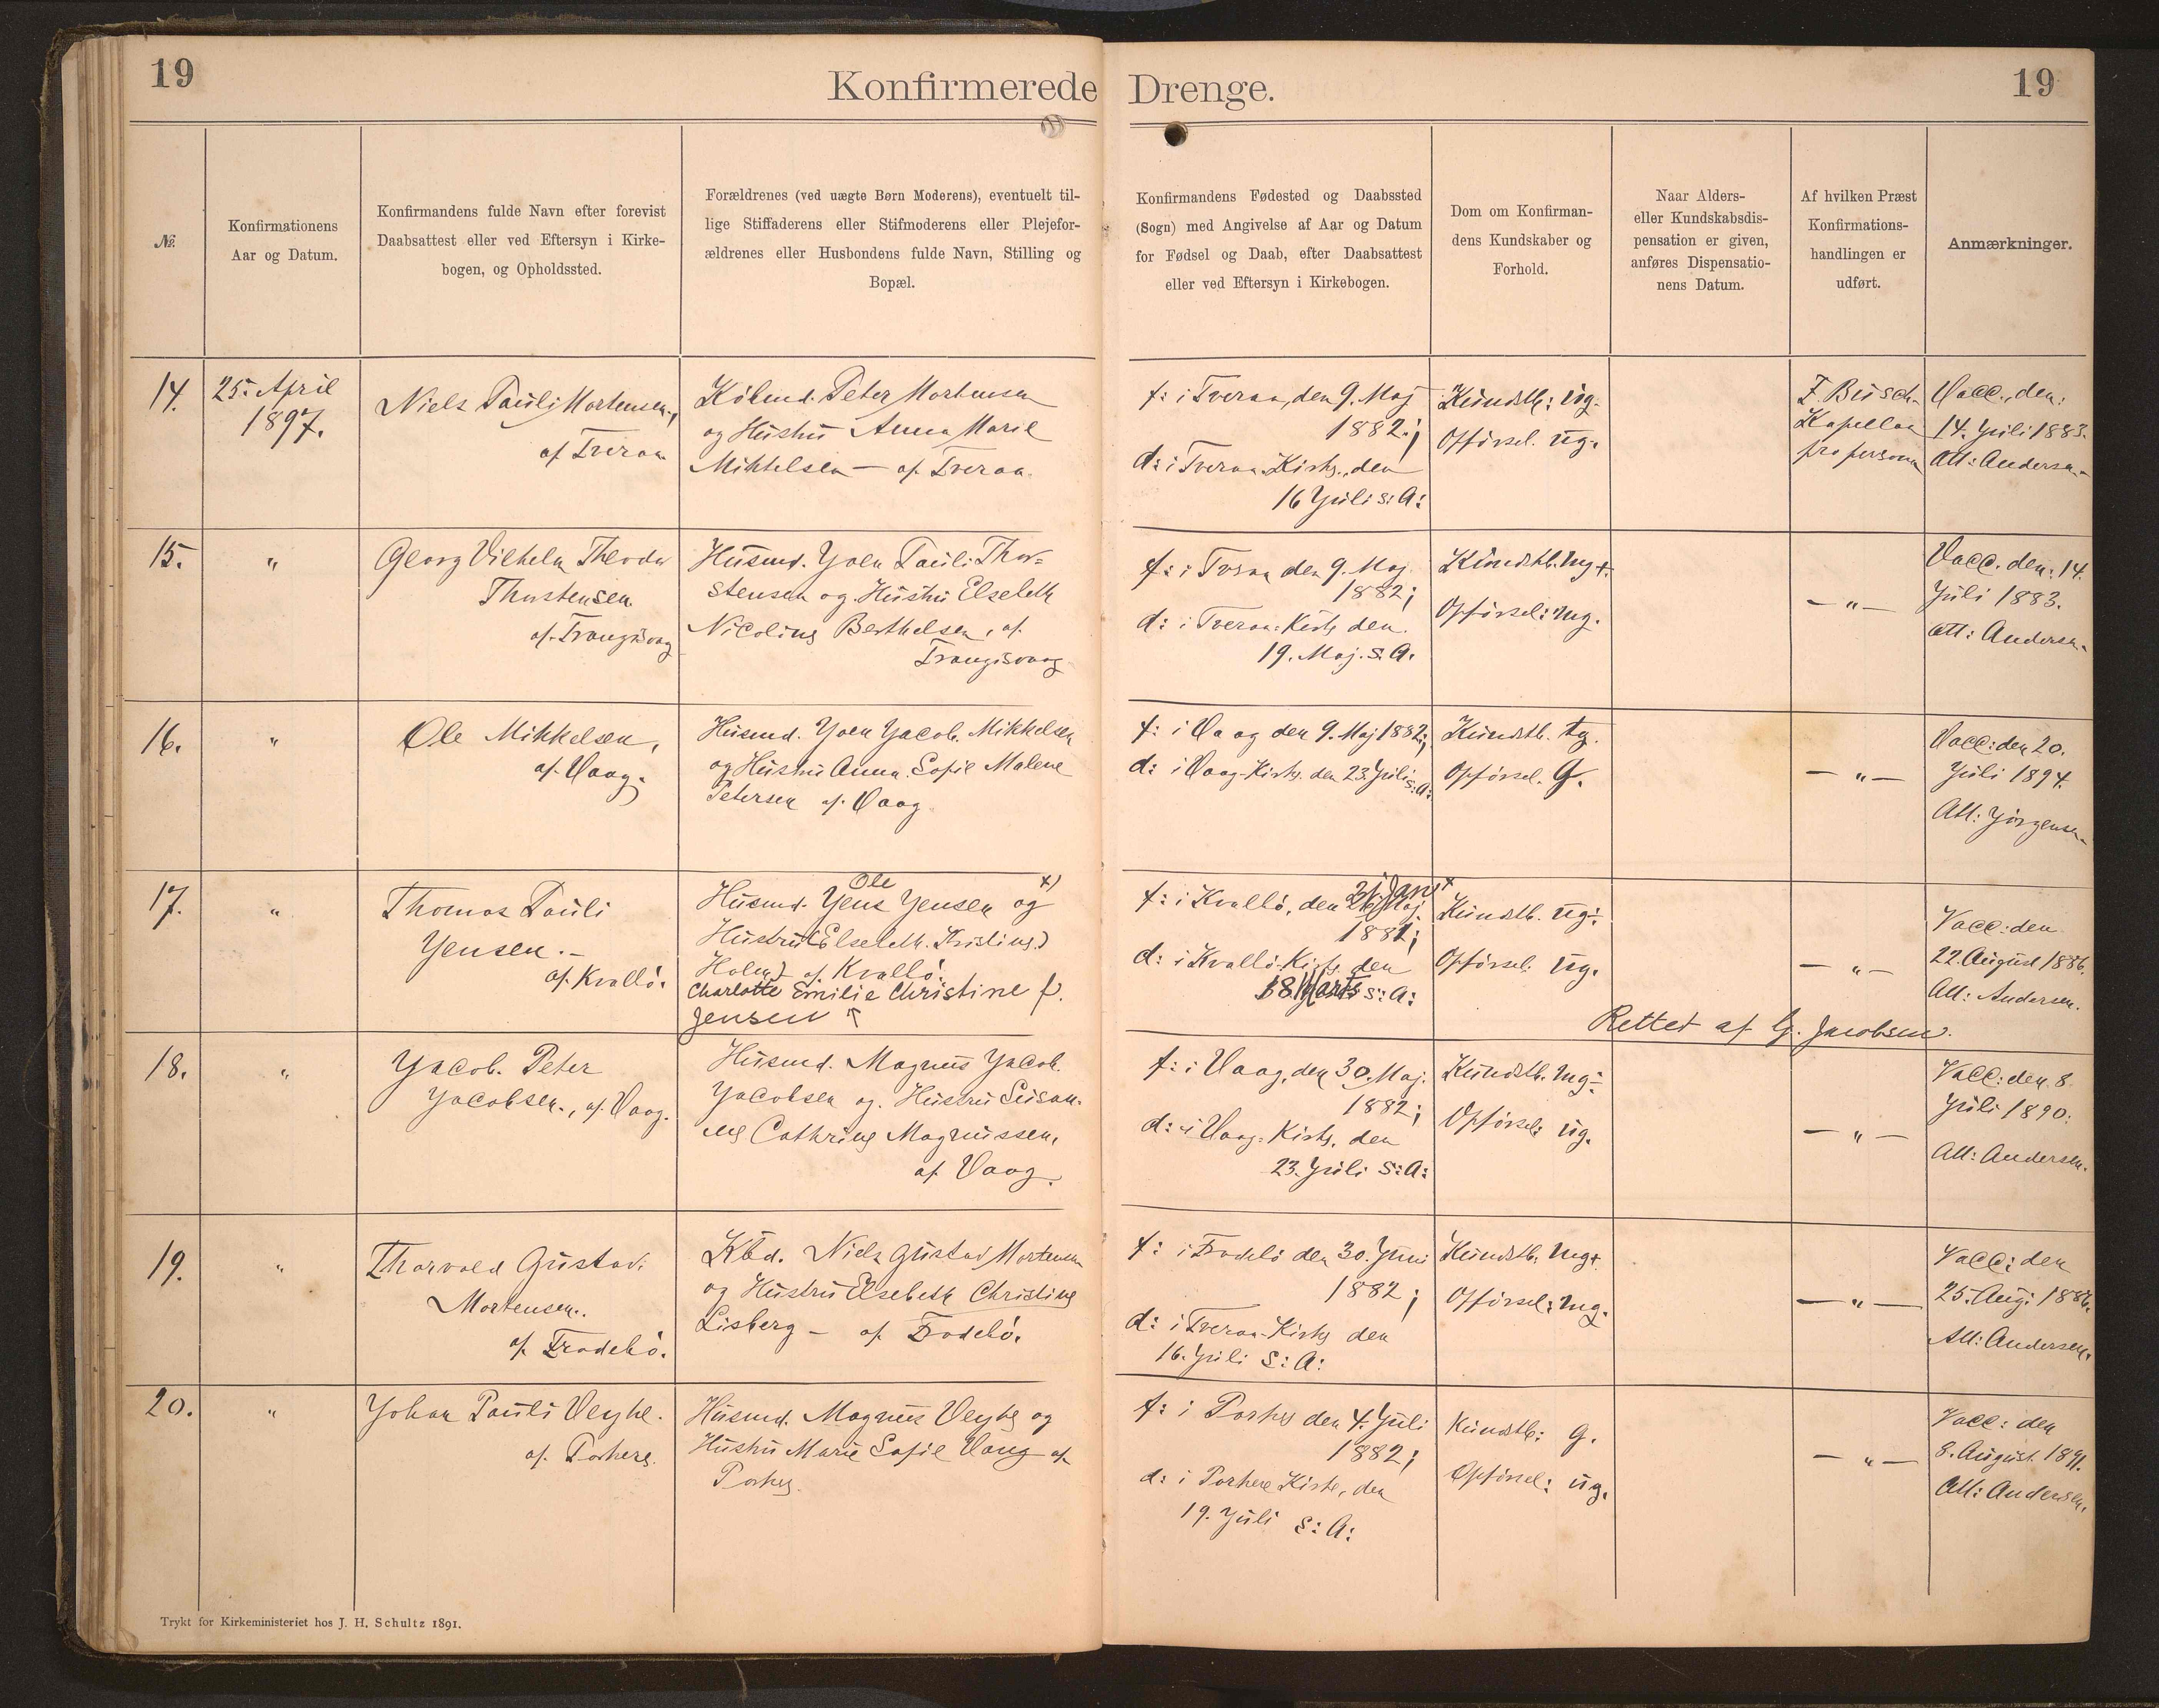 19
Konfirmerede Drenge.
19
№
Konfirmationens
Aar og Datum.
Konfirmandens fulde Navn efter forevist
Daabsattest eller ved Eftersyn i Kirke-
bogen, og Opholdssted.
Forældrenes (ved uægte Børn Moderens), eventuelt til-
lige Stiffaderens eller Stifmoderens eller Plejefor-
ældrenes eller Husbondens fulde Navn, Stilling og
Bopæl.
Konfirmandens Fødested og Daabssted
(Sogn) med Angivelse af Aar og Datum
for Fødsel og Daab, efter Daabsattest
eller ved Eftersyn i Kirkebogen.
Dom om Konfirman-
dens Kundskaber og
Forhold.
Naar Alders-
eller Kundskabsdis-
pensation er given,
anføres Dispensatio-
nens Datum.
Af hvilken Præst
Konfirmations-
handlingen er
udført.
Anmærkninger.
14.
25. April
1897.
Niels Pauli Mortensen,
af Tveraa
Købmd. Peter Mortensen
og Hustru Anna Marie
Mikkelsen — af Tveraa.
f: i Tveraa, den 9. Maj
1882;
d: i Tveraa Kirke, den
16 Juli S: A:
Kundsk: ug-
Opførsel. ug.
F. Busch.
Kapellan
pro persona
Vacc., den:
14. Juli 1883.
Att: Andersen
15.
"
Georg Vilhelm Theodor
Thorstensen.
af Trangisvaag
Husmd. Joen Pauli Thor=
stensen og Hustru Elsebeth
Nicoline Berthelsen, af
Trangisvaag
f: i Tveraa den 9. Maj
1882;
d: i Tveraa Kirke den
19. Maj. S. A.
Kundsk. mg+.
Opførsel: mg.
— " —
Vacc. den: 14.
Juli 1883.
Att: Andersen
16.
"
Ole Mikkelsen,
af Vaag.
Husmd. Joen Jacob Mikkelsen
og Hustru Anna Sofie Malene
Petersen af Vaag.
f: i Vaag den 9. Maj 1882;
d: i Vaag Kirke. den 23. Juli S: A:
Kundsk. tg.
Opførsel. G.
— " —
Vacc: den 20.
Juli 1894.
Att: Jørgensen
17.
"
Thomas Pauli
Jensen.—
af Kvalbø.
Ole
Husmd. Jens Jensen og x)
Hustru (Elsebeth Kristine)
Holm) af Kvalbø.
Charlotte Emilie Christine f.
Jensen
f: i Kvalbø, den
1882;
d: i Kvalbø Kirke den
18 Marts S: A:
Kundsk. ug÷.
Opførsel: ug.
— " —
Vacc: den
22. August 1886.
Att: Andersen.
Rettet af G. Jacobsen.
18.
"
Jacob Peter
Jacobsen., af Vaag.
Husmd. Magnus Jacob
Jacobsen og Hustru Susan-
ne Cathrine Magnussen,
af Vaag.
f: i Vaag, den 30. Maj.
1882;
d: i Vaag Kirke, den
23. Juli S: A:
Kundsk. mg÷
Opførsel: ug.
— " —
Vacc: den 8.
Juli 1890.
Att: Andersen.
19.
"
Thorvald Gustav
Mortensen.
af Frodebø.
Kbd. Niels Gustav Mortensen
og Hustru Elsebeth Christine
Lisberg — af Frodebø.
f: i Frodebø den 30. Juni
1882;
d: i Tveraa Kirke den
16. Juli S: A:
Kundsk. mg+.
Opførsel: mg.
— " —
Vacc: den
25. Aug: 1886.
Att: Andersen.
20.
"
Johan Pauli Veyhe.
af Porkere.
Husmd. Magnus Veyhe og
Hustru Marie Sofie Vaag af
Porkere.
f: i Porkere den 4. Juli
1882;
d: i Porkere Kirke, den
19. Juli S: A:
Kundsk: g.
Opførsel: ug.
— " —
Vacc: den
8. August 1891.
Att: Andersen.
Trykt for Kirkeministeriet hos J. H. Schultz 1891.